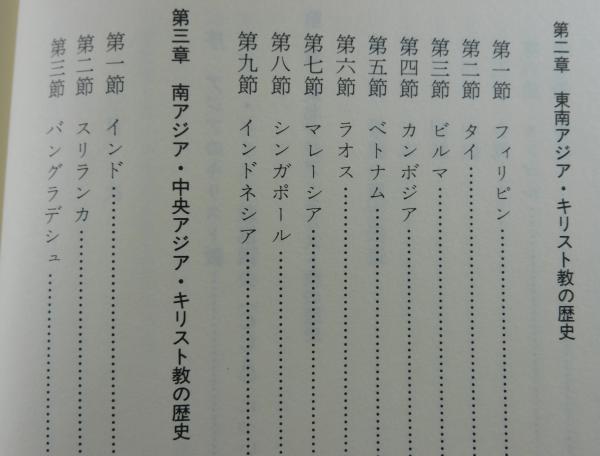 第二章 東南アジア・キリスト教の歴史
第一節 フィリピン……………………
第二節 タイ……………………
第三節 ビルマ……………………
第四節 カンボジア……………………
第五節 ベトナム……………………
第六節 ラオス……………………
第七節 マレーシア……………………
第八節 シンガポール……………………
第九節 インドネシア……………………
第三章 南アジア・中央アジア・キリスト教の歴史
第一節 インド……………………
第二節 スリランカ……………………
第三節 バングラデシュ……………………